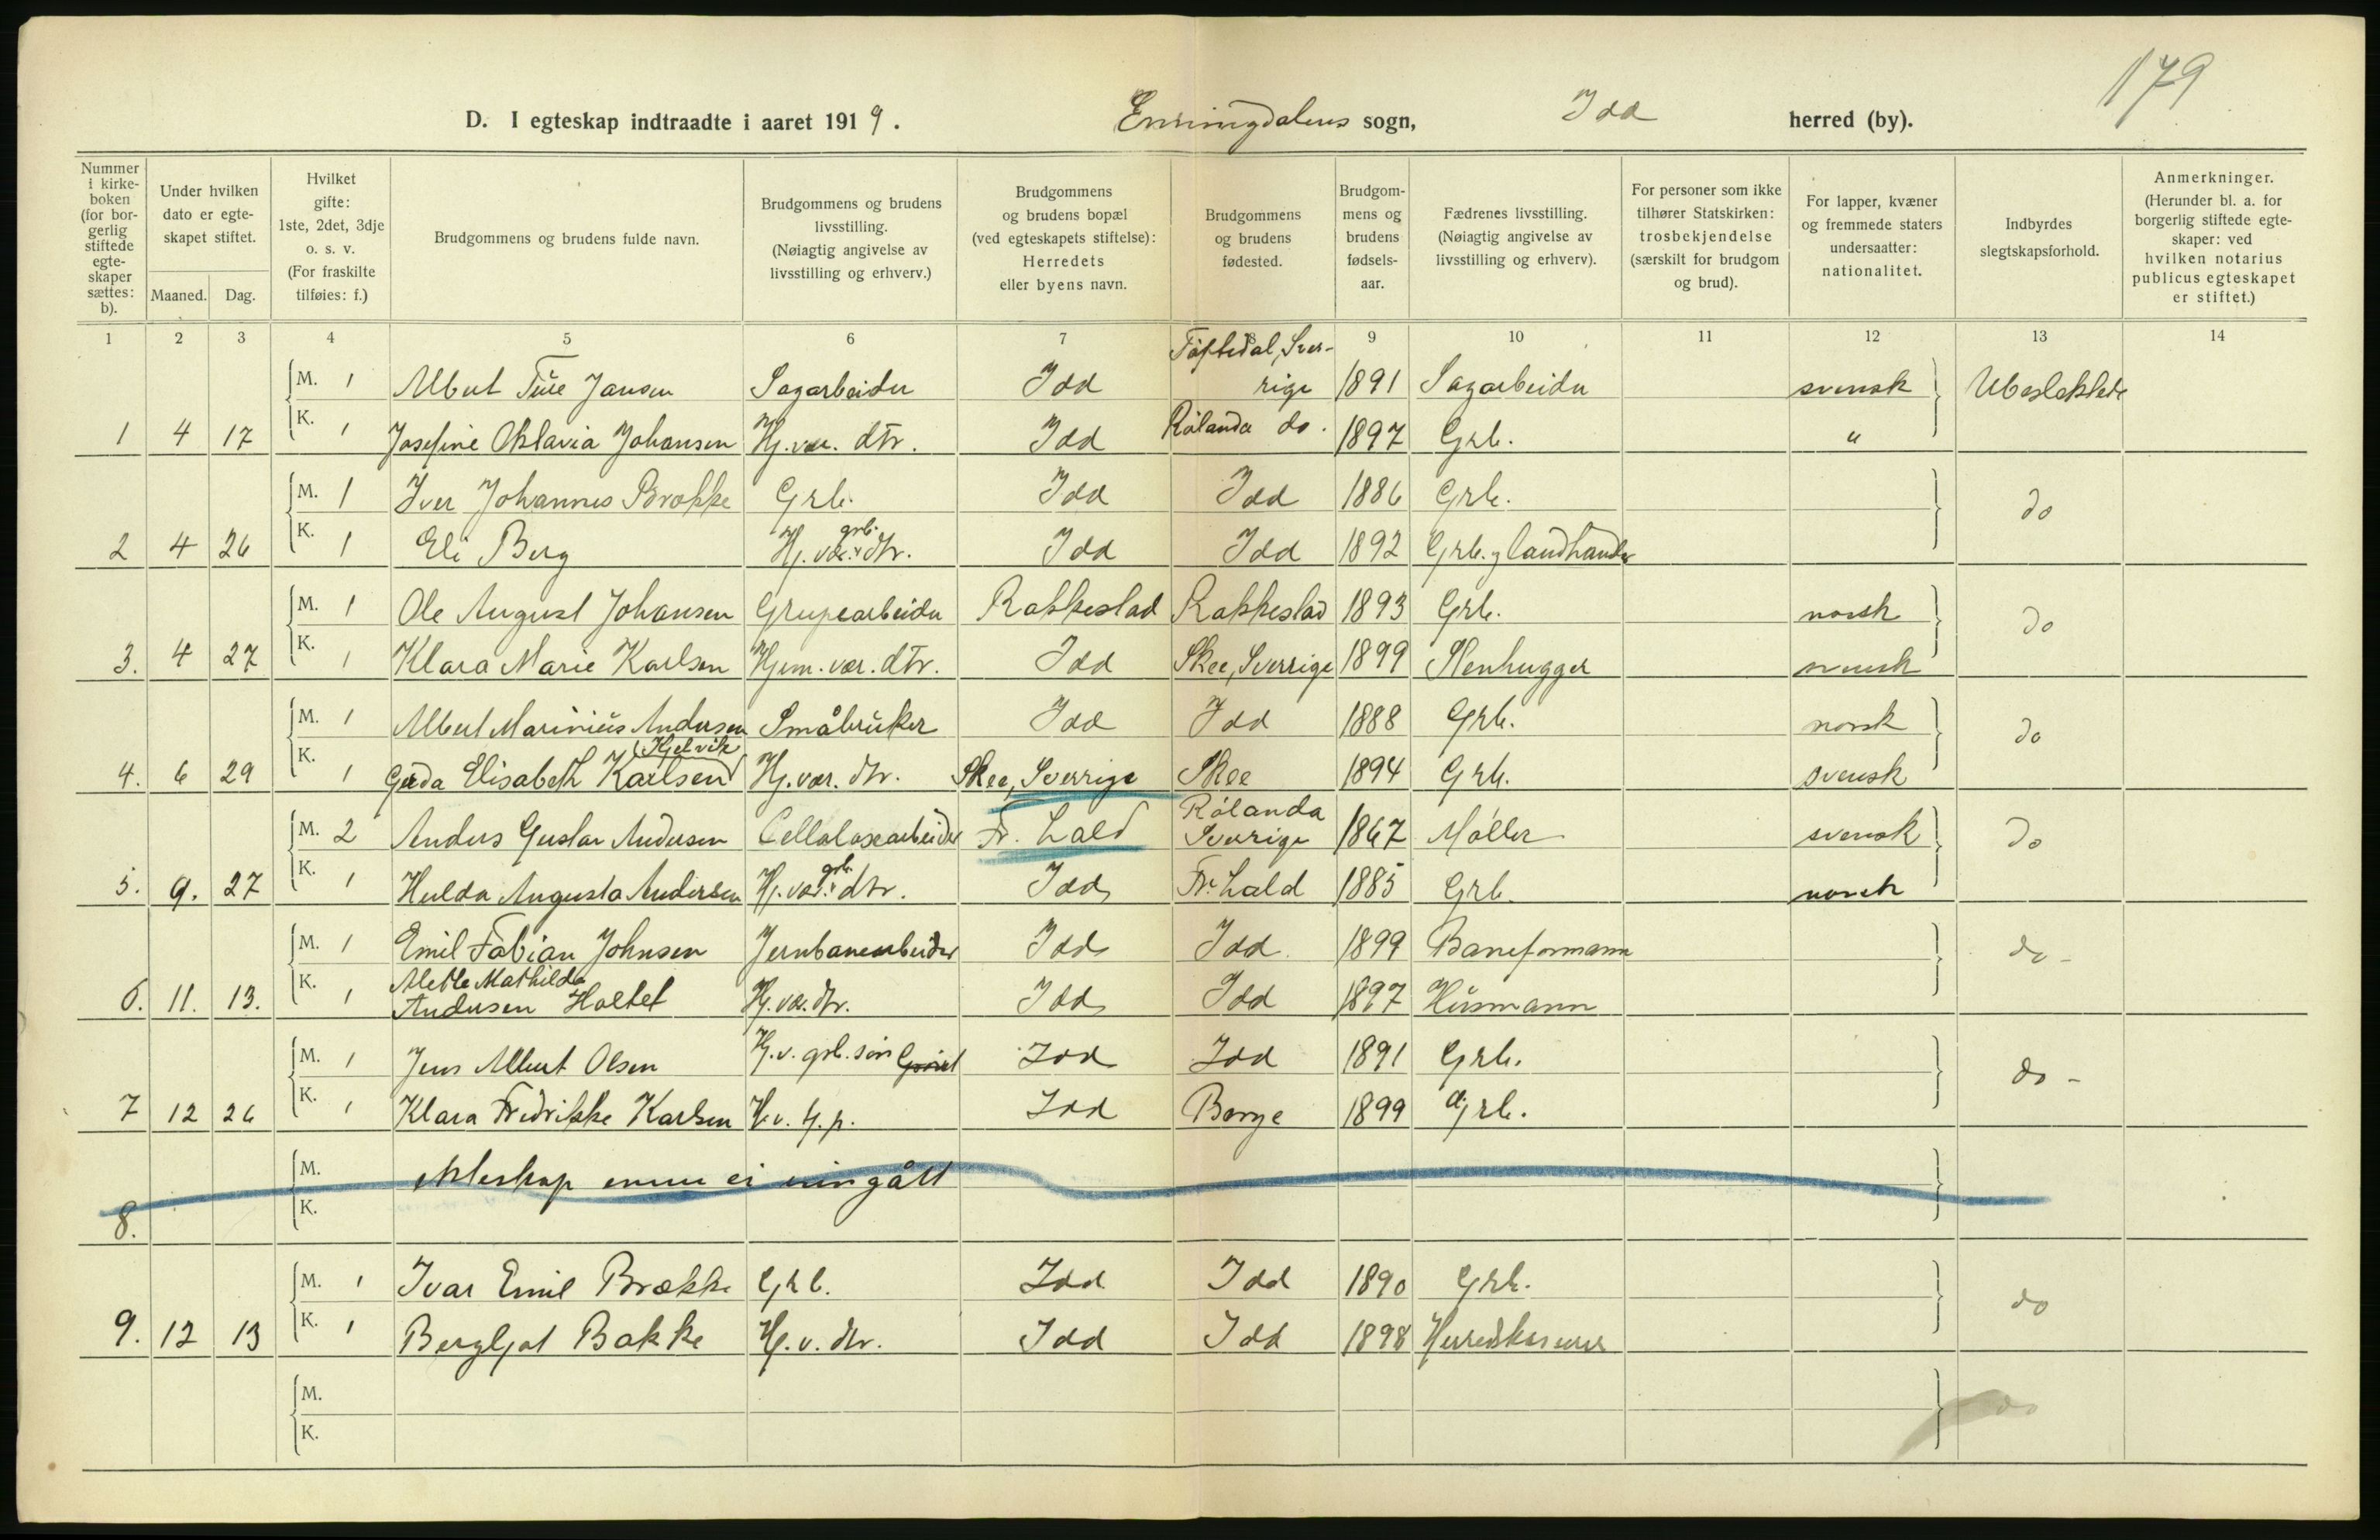 179
D. I egteskap indtraadte i aaret 1919. Enningdalens sogn, Idd herred (by).
Nummer i kirkeboken (for borgerlig stiftede egteskaper sættes: b).
Under hvilken dato er egteskapet stiftet.
Maaned. Dag.
Hvilket gifte: 1ste, 2det, 3dje o. s. v. (For fraskilte tilføies: f.)
Brudgommens og brudens fulde navn.
Brudgommens og brudens livsstilling. (Nøiagtig angivelse av livsstilling og erhverv.)
Brudgommens og brudens bopæl (ved egteskapets stiftelse): Herredets eller byens navn.
Brudgommens og brudens fødested.
Brudgommens og brudens fødselsaar.
Fædrenes livsstilling. (Nøiagtig angivelse av livsstilling og erhverv).
For personer som ikke tilhører Statskirken: trosbekjendelse (særskilt for brudgom og brud).
For lapper, kvæner og fremmede staters undersaatter: nationalitet.
Indbyrdes slegtskapsforhold.
Anmerkninger. (Herunder bl. a. for borgerlig stiftede egteskaper: ved hvilken notarius publicus egteskapet er stiftet.)
1 2 3 4 5 6 7 8 9 10 11 12 13 14
M. 1 Albert Ture Jansen Sagarbeider Idd Töftedal, Sverrige 1891 Sagarbeider svensk Ubeslektede
1 4 17 K. 1 Josefine Oktavia Johansen Hj. vær. dtr. Idd Rölanda do. 1897 Grb. "
M. 1 Iver Johannes Brække Grb. Idd Idd 1886 Grb. do
2 4 26 K. 1 Eli Berg Hj. vær. grb. dtr. Idd Idd 1892 Grb. og landhandler
M. 1 Ole August Johansen Grupearbeider Rakkestad Rakkestad 1893 Grb. norsk do
3. 4 27 K. 1 Klara Marie Karlsen Hjem. vær. dtr. Idd Skee, Sverrige 1899 Stenhugger svensk
M. 1 Albert Marinius Andersen Småbruker Idd Idd 1888 Grb. norsk do
4. 6 29 K. 1 Gerda Elisabeth Karlsen (Kjelvik) Hj. vær. dtr. Skee, Sverrige Skee 1894 Grb. svensk
M. 2 Anders Gustav Andersen Cellolosearbeider Fr. Hald Rölanda Sverrige 1867 Møller svensk do
5. 9. 27 K. 1 Hulda Augusta Andersen Hj. vær. grb. dtr. Idd Fr. Hald 1885 Grb. norsk
M. 1 Emil Fabian Johnsen Jernbanearbeider Idd Idd 1899 Baneformann do -
6. 11. 13. K. 1 Mette Mathilde Andersen Holtet Hj. vær. dtr. Idd Idd 1897 Husmann
M. 1 Jens Albert Olsen Hj. v. grb. søn Idd Idd 1891 Grb. do -
7 12 26 K. 1 Klara Fredrikke Karlsen H. v. hj. p. Idd Borge 1899 Grb.
M. ekteskap ennu ei inngått
8. K.
M. 1 Ivar Emil Brække Grb. Idd Idd 1890 Grb. do
9. 12 13 K. 1 Bergljot Bakke Hj. v. dtr. Idd Idd 1898 Herredskasserer
M. do
K.